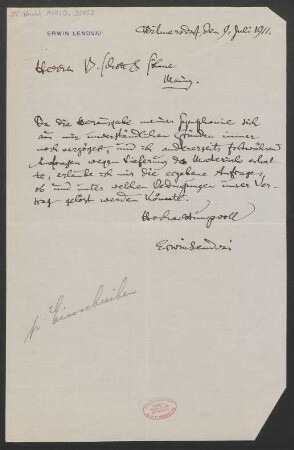 ERWIN LENDVAI
Wilmersdorf, den 9. Juli 1911.
Herren B. Schott's Söhne
Mainz.
Da die Herausgabe meiner Symphonie sich
aus mir unverständlichen Gründen immer
noch verzögert, und ich andererseits fortwährend
Anfragen wegen Lieferung des Materials erhal-
te, erlaube ich mir die ergebene Anfrage,
ob und unter welchen Bedingungen unser Ver-
trag gelöst werden könnte.
Hochachtungsvoll
Erwin Lendvai
p. Einschreiben